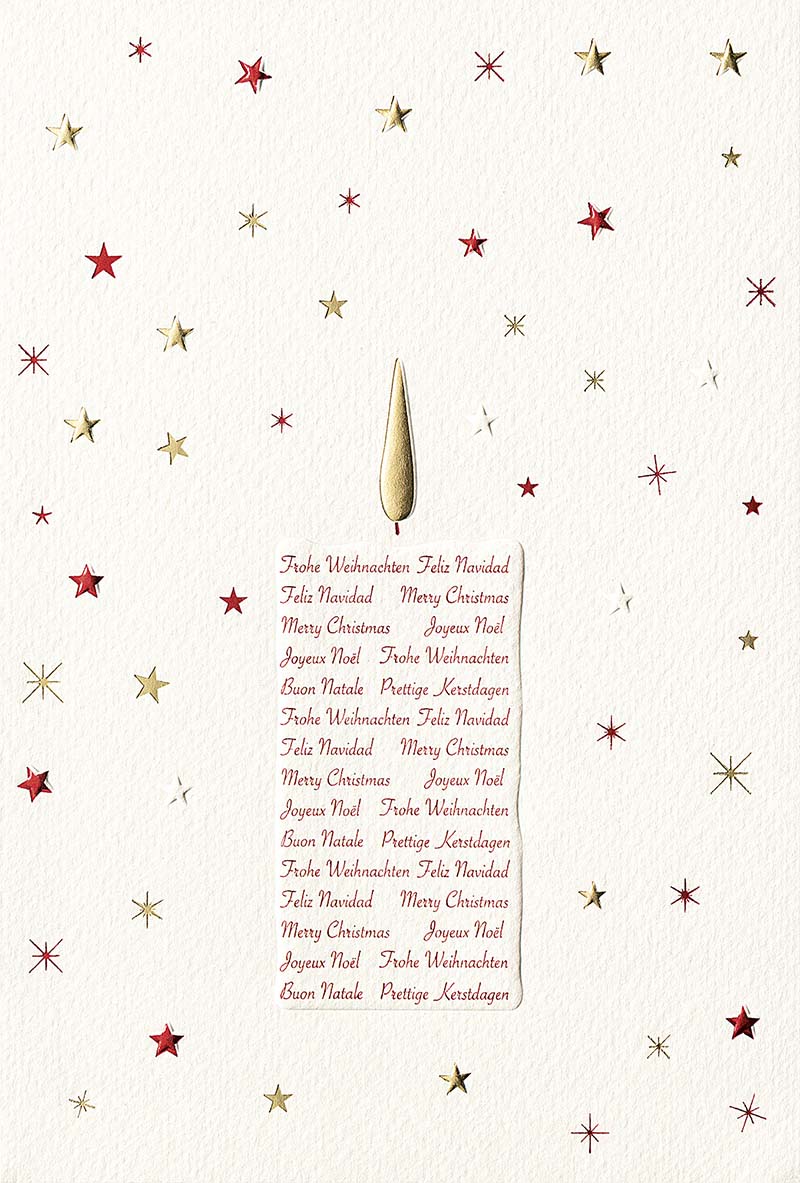 Frohe Weihnachten Feliz Navidad
Feliz Navidad Merry Christmas
Merry Christmas Joyeux Noël
Joyeux Noël Frohe Weihnachten
Buon Natale Prettige Kerstdagen
Frohe Weihnachten Feliz Navidad
Feliz Navidad Merry Christmas
Merry Christmas Joyeux Noël
Joyeux Noël Frohe Weihnachten
Buon Natale Prettige Kerstdagen
Frohe Weihnachten Feliz Navidad
Feliz Navidad Merry Christmas
Merry Christmas Joyeux Noël
Joyeux Noël Frohe Weihnachten
Buon Natale Prettige Kerstdagen